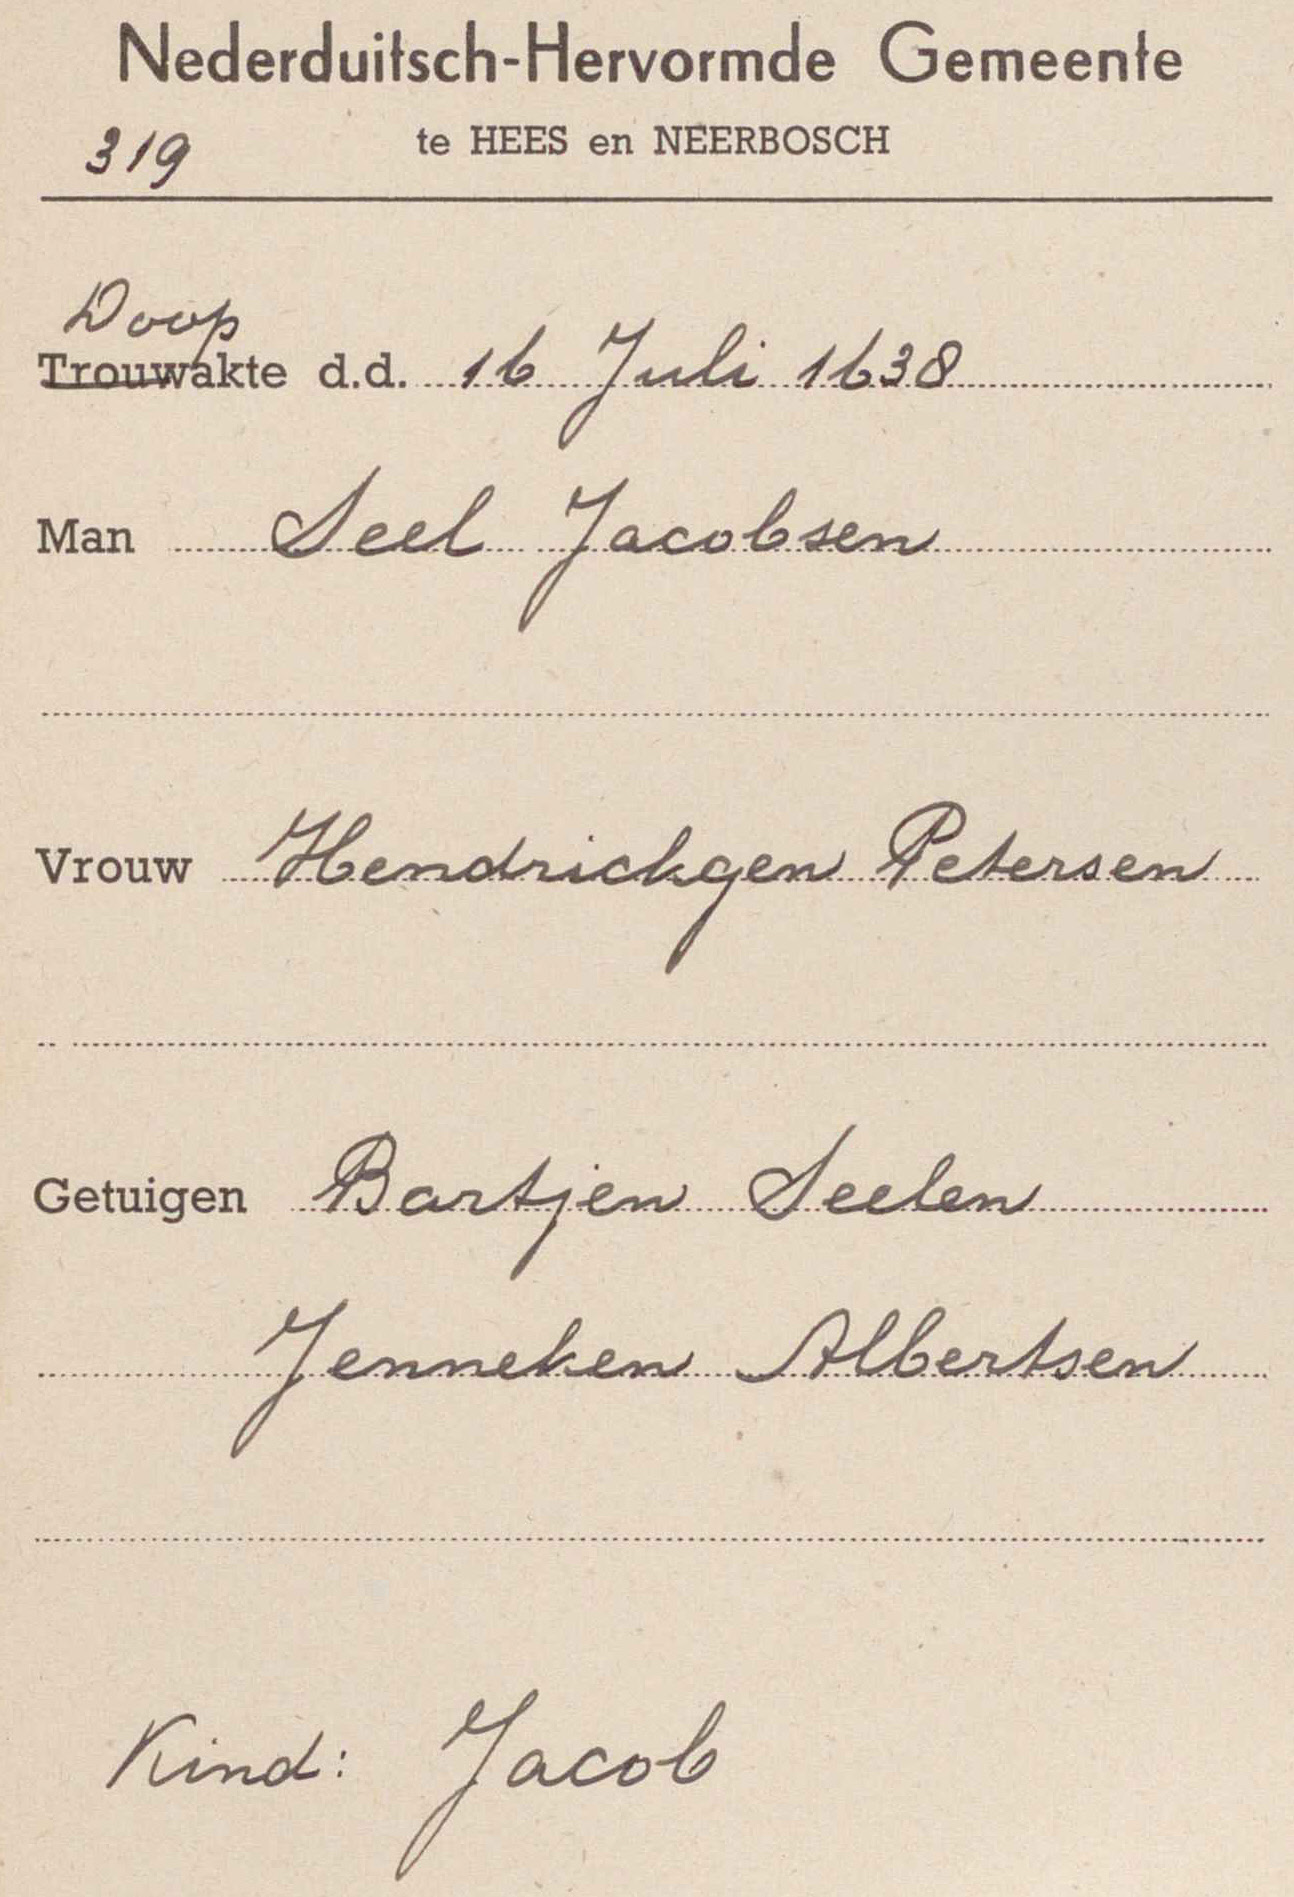 Nederduitsch-Hervormde Gemeente
319 te HEES en NEERBOSCH
Doop
Trouwakte d.d. 16 Juli 1638
Man Seel Jacobsen
Vrouw Hendrickgen Petersen
Getuigen Bartjen Seelen
Jenneken Albertsen
Kind: Jacob